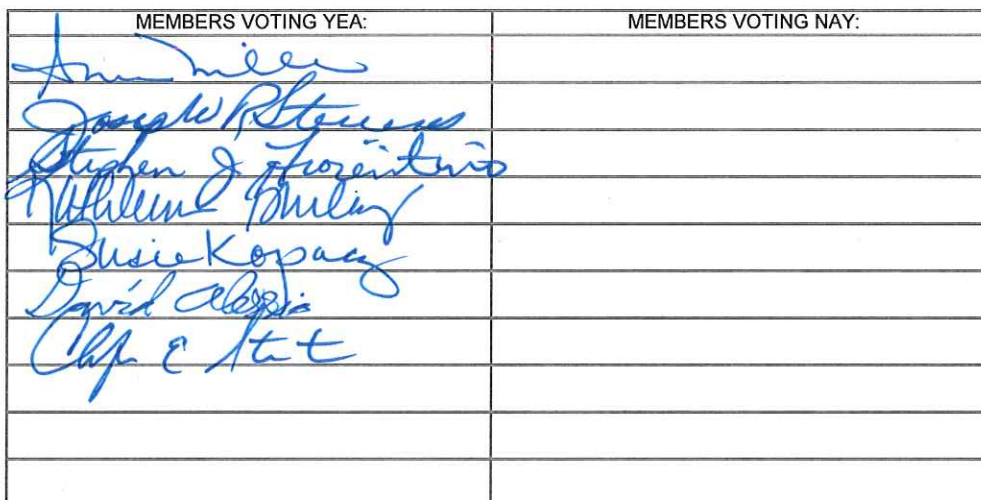 MEMBERS VOTING YEA: MEMBERS VOTING NAY:
Ann Miller
Joseph W P Stevens
Stephen J. Fiorentino
Kathleen
Susie Kopacz
David Alessio
E